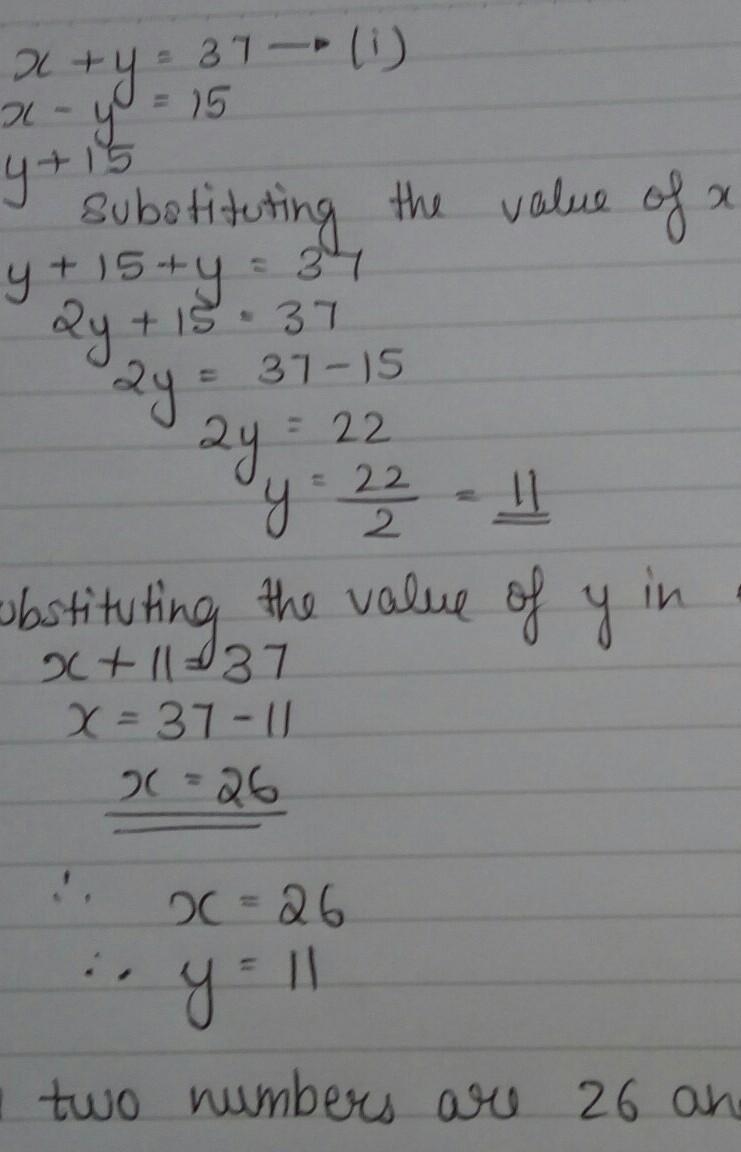 x + y = 37 → (i)
x - y = 15
y + 15
Substituting the value of x
y + 15 + y = 37
2y + 15 = 37
2y = 37 - 15
2y = 22
y = 22/2 = 11
ubstituting the value of y in
x + 11 = 37
x = 37 - 11
x = 26
∴ x = 26
∴ y = 11
two numbers are 26 an